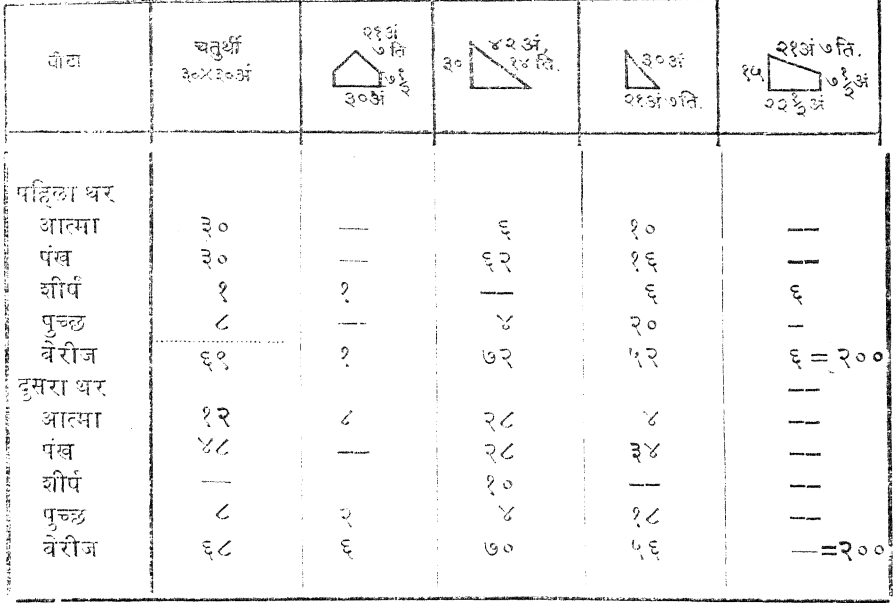 वीटा चतुर्थी ३०×३०अं २१अं ७ ति ७१/२ ३०अं ३० ४२ अं, १४ ति. ३०अं २१अं७ति. १५ २१अं ७ ति. ७१/२अं २२१/२अं
पहिला थर
आत्मा ३० — ६ १० —
पंख ३० — ६२ १६ —
शीर्ष १ १ — ६ ६
पुच्छ ८ — ४ २० –
बेरीज ६९ १ ७२ ५२ ६ = २००
दुसरा थर —
आत्मा १२ ८ २८ ४ —
पंख ४८ — २८ ३४ —
शीर्ष — १० — —
पुच्छ ८ २ ४ १८ —
बेरीज ६८ ६ ७० ५६ —=२००